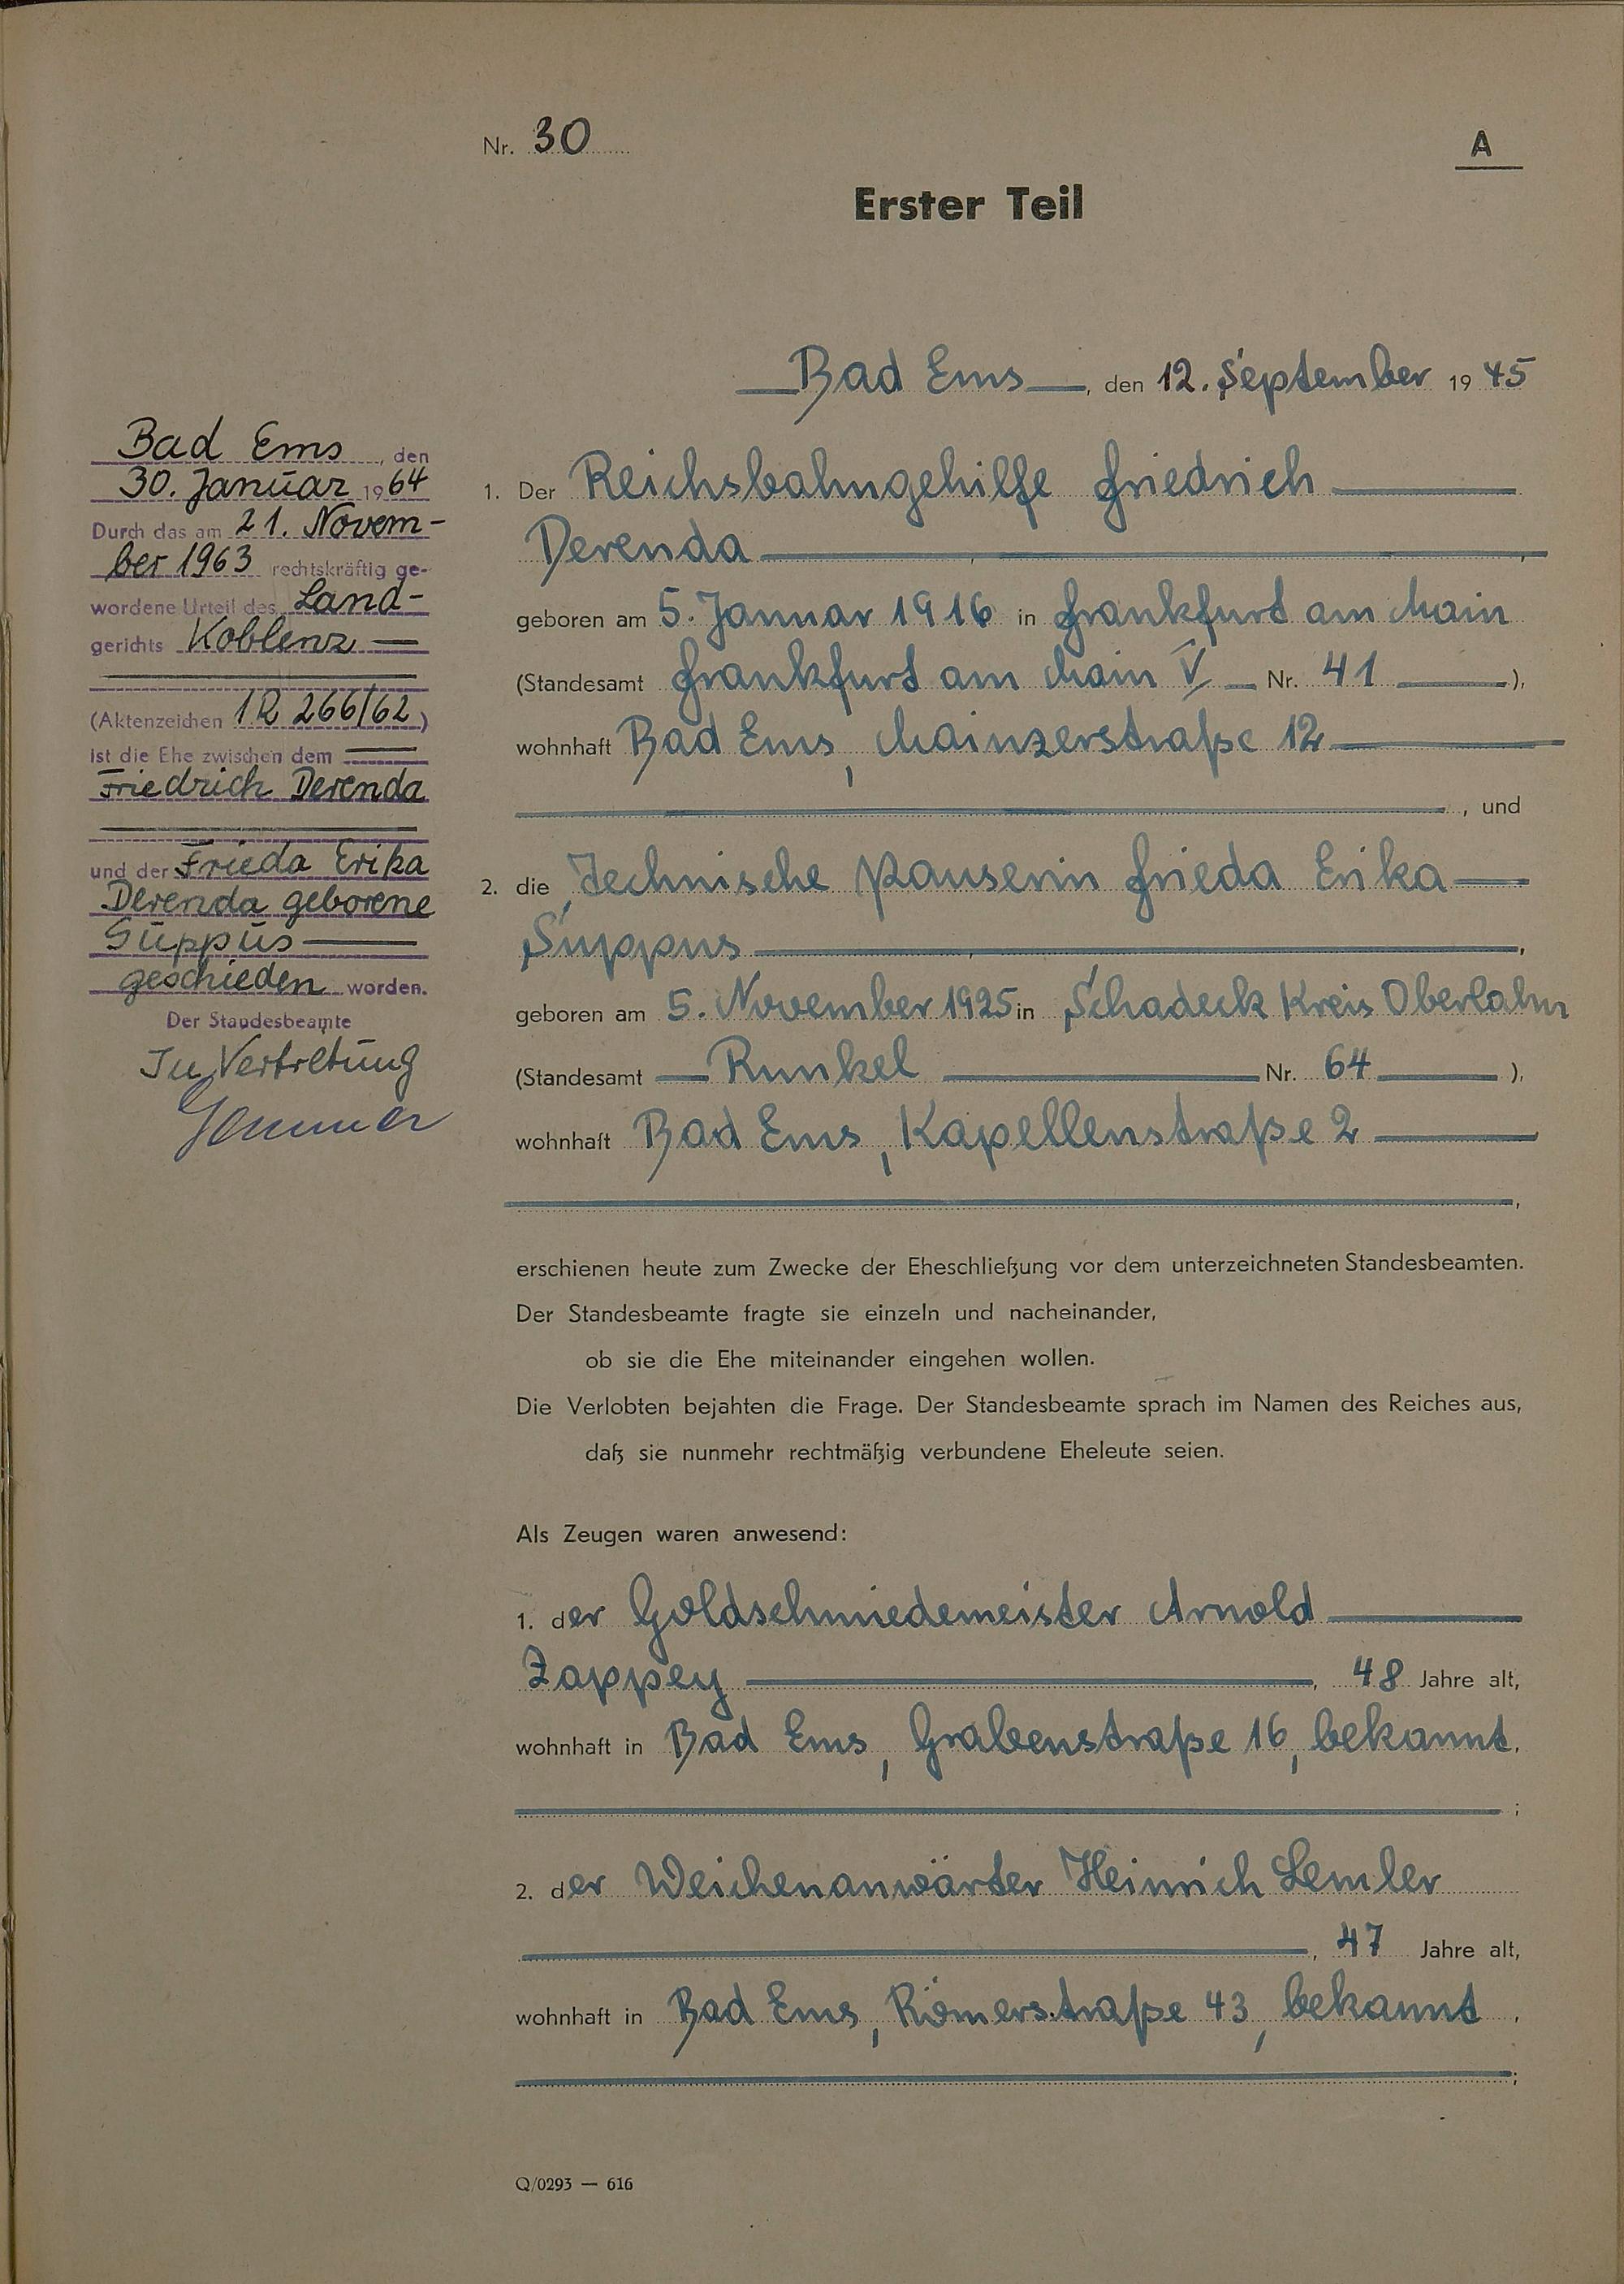 Nr. 30
A
Erster Teil
Bad Ems, den 12. September 1945
Bad Ems, den
30. Januar 1964
Durch das am 21. Novem-
ber 1963 rechtskräftig ge-
wordene Urteil des Land-
gerichts Koblenz
(Aktenzeichen 1R 266/62)
ist die Ehe zwischen dem
Friedrich Derenda
und der Frieda Erika
Derenda geborene
Suppus
geschieden worden.
Der Standesbeamte
In Vertretung
1. Der Reichsbahngehilfe Friedrich
Derenda,
geboren am 5. Januar 1916 in Frankfurt am Main
(Standesamt Frankfurt am Main V Nr. 41),
wohnhaft Bad Ems, Mainzerstraße 12
, und
2. die Technische Pauserin Frieda Erika
Suppus,
geboren am 5. November 1925 in Schadeck Kreis Oberlahn
(Standesamt Runkel Nr. 64),
wohnhaft Bad Ems, Kapellenstraße 2
,
erschienen heute zum Zwecke der Eheschließung vor dem unterzeichneten Standesbeamten.
Der Standesbeamte fragte sie einzeln und nacheinander,
ob sie die Ehe miteinander eingehen wollen.
Die Verlobten bejahten die Frage. Der Standesbeamte sprach im Namen des Reiches aus,
daß sie nunmehr rechtmäßig verbundene Eheleute seien.
Als Zeugen waren anwesend:
1. der Goldschmiedemeister Arnold
Zappey, 48 Jahre alt,
wohnhaft in Bad Ems, Grabenstraße 16, bekannt.
;
2. der Weichenanwärter Heinrich Lemler
, 47 Jahre alt,
wohnhaft in Bad Ems, Römerstraße 43, bekannt.
;
Q/0293 — 616